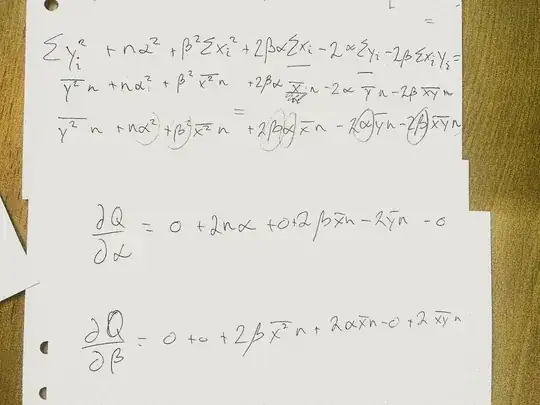 =
Σy_i² + nα² + β²Σx_i² + 2βαΣx_i − 2αΣy_i − 2βΣx_iy_i =
y̅²̅ n + nα² + β² x̅²̅ n + 2βα x̅ n − 2α y̅ n − 2β x̅y̅ n
=
y̅²̅ n + nα² + β² x̅²̅ n + 2βα x̅ n − 2α y̅ n − 2β x̅y̅ n
∂Q/∂α = 0 + 2nα + 0 + 2βx̅n − 2y̅n − 0
∂Q/∂β = 0 + 0 + 2β x̅²̅ n + 2αx̅n − 0 + 2 x̅y̅ n